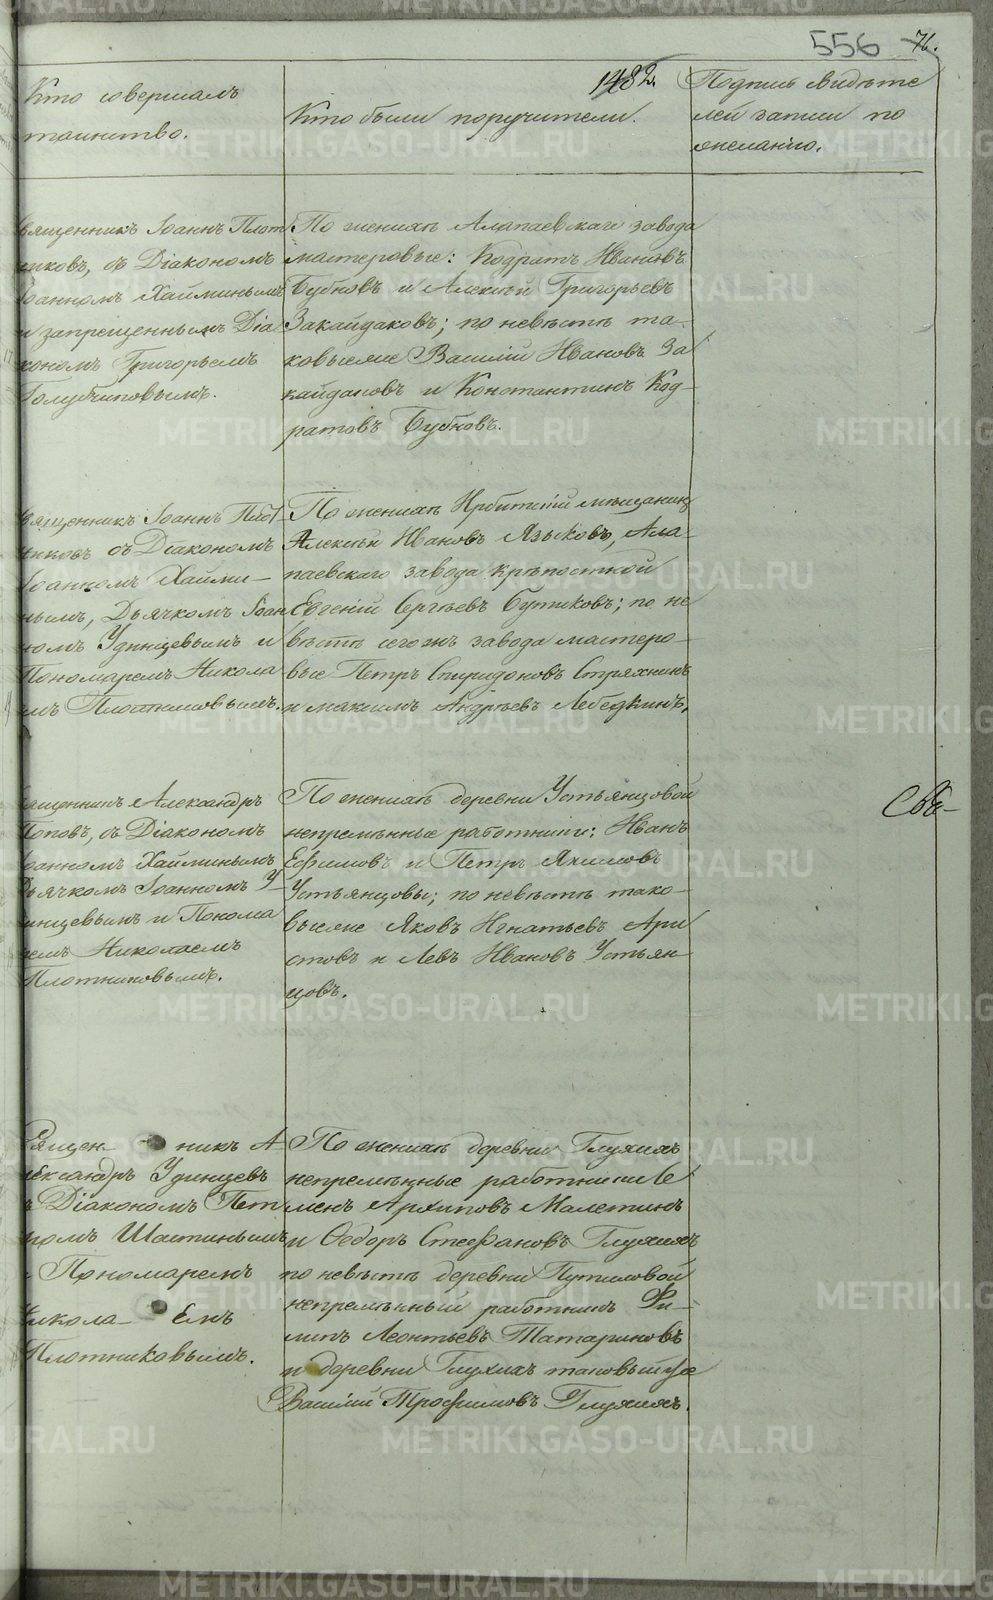 556 76.
1482.
Кто совершалъ
таинство.
Кто были поручители.
Подпись свидѣте
лей записи по
желанію.
Священникъ Іоаннъ Плот
никовъ, съ Діакономъ
Іоанномъ Хайминымъ
и запрещеннымъ Діа
кономъ Григорьемъ
Голубчиковымъ.
По женихѣ Алапаевскаго завода
мастеровые: Кодратъ Ивановъ
Бубновъ и Алексѣй Григорьевъ
Закайдаковъ; по невѣстѣ та-
ковыеже Василій Ивановъ За
кайдаковъ и Константинъ Код-
ратовъ Бубновъ.
Священникъ Іоаннъ Плот
никовъ съ Діакономъ
Іоанномъ Хайми-
нымъ, Дьячкомъ Іоан
номъ Удинцевымъ и
Пономаремъ Никола
емъ Плотниковымъ.
По женихѣ Ирбитскій мѣщанинъ
Алексѣй Ивановъ Языковъ, Ала-
паевскаго завода крѣпостной
Евгеній Сергѣевъ Бутаковъ; по не
вѣстѣ сегожъ завода мастеро-
вые Петръ Спиридоновъ Стряхнинъ
и Максимъ Андрѣевъ Лебедкинъ,
Священникъ Александръ
Поповъ, съ Діакономъ
Іоанномъ Хайминымъ
Дьячкомъ Іоанномъ У-
динцевымъ и Понома
ремъ Николаемъ
Плотниковымъ.
По женихѣ деревни Устьянцовой
непремѣнные работники: Иванъ
Ефимовъ и Петръ Якимовъ
Устьянцовы; по невѣстѣ тако-
выеже Яковъ Игнатьевъ Ари
стовъ и Левъ Ивановъ Устьян
цовъ.
Свѣ-
Священ-никъ А-
лександръ Удинцевъ
съ Діакономъ Пет
ромъ Шастинымъ
и Пономаремъ
Никола-Емъ
Плотниковымъ.
По женихѣ деревни Глухихъ
непремѣнные работники Се
менъ Архиповъ Малетинъ
и Ѳедоръ Стефановъ Глухихъ
по невѣстѣ деревни Путиловой
непремѣнный работникъ Фи-
липъ Леонтьевъ Татариновъ
и деревни Глухихъ таковый же
Василій Трофимовъ Глухихъ.
METRIKI.GASO-URAL.RU